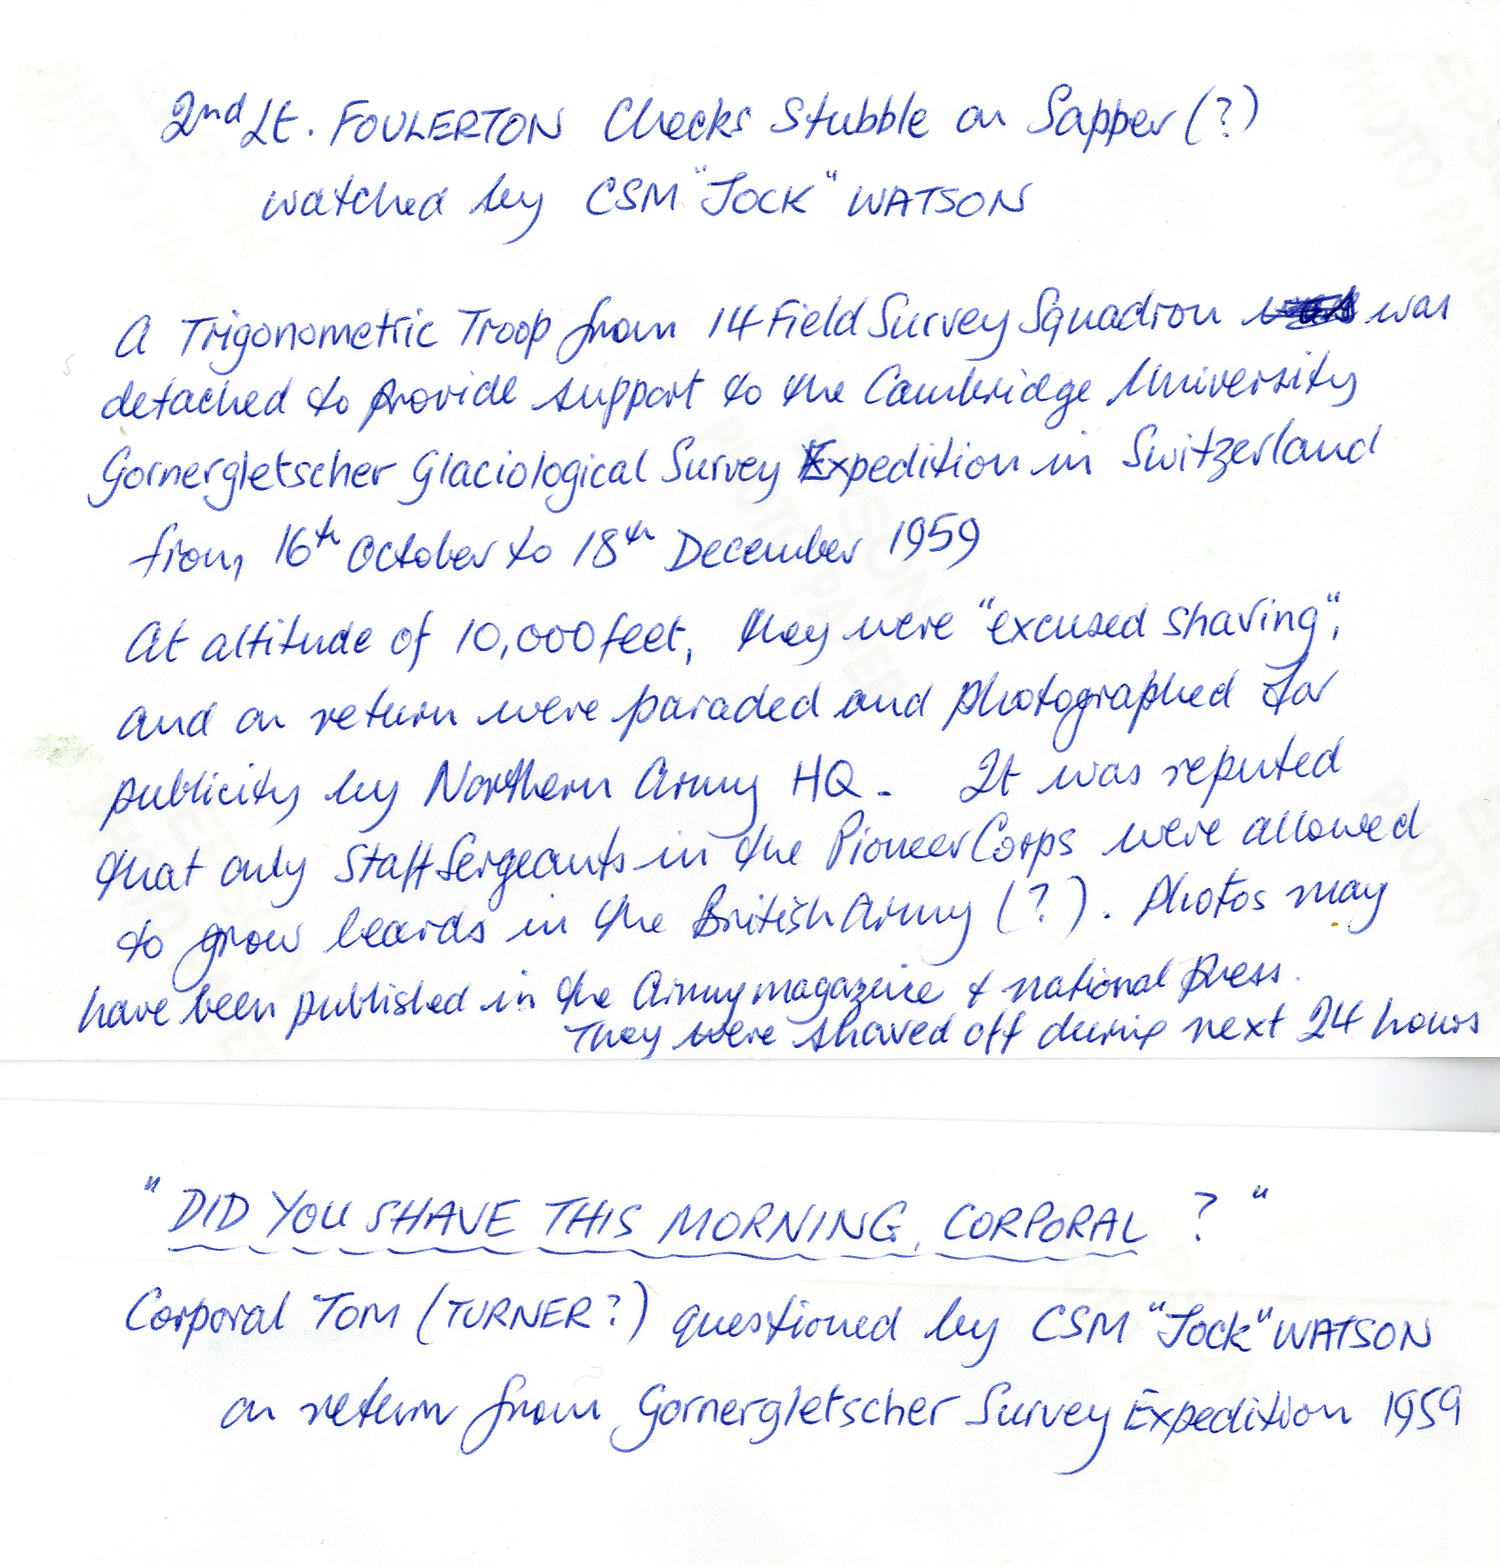 2nd Lt. FOULERTON Checks Stubble on Sapper (?)
watched by CSM "JOCK" WATSON
A Trigonometric Troop from 14 Field Survey Squadron was
detached to provide support to the Cambridge University
Gornergletscher Glaciological Survey Expedition in Switzerland
from 16th October to 18th December 1959
At altitude of 10,000 feet, they were "excused shaving",
and on return were paraded and photographed for
publicity by Northern Army HQ. It was reputed
that only Staff Sergeants in the Pioneer Corps were allowed
to grow beards in the British Army (?). Photos may
have been published in the Army magazine & national press.
They were shaved off during next 24 hours
"DID YOU SHAVE THIS MORNING, CORPORAL ?"
Corporal TOM (TURNER?) questioned by CSM "Jock" WATSON
on return from Gornergletscher Survey Expedition 1959
EPSON
PHOTO PAPER